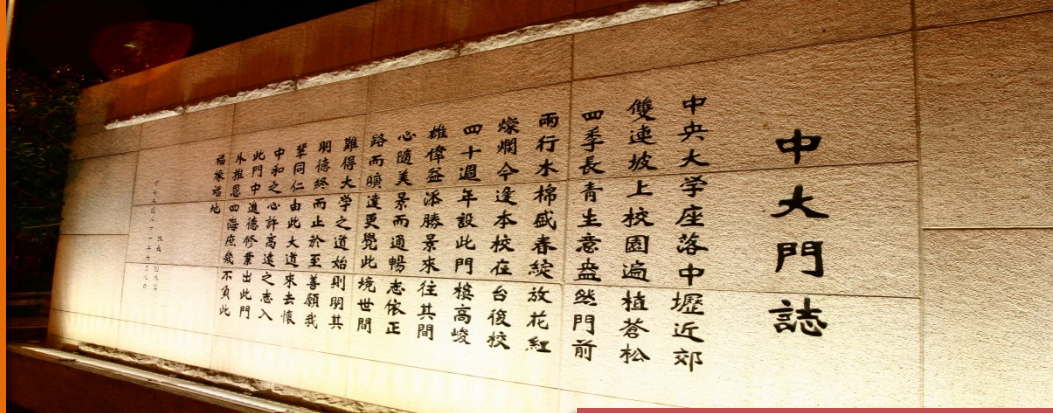 中大門誌
中央大学座落中壢近郊
雙連坡上校園遍植蒼松
四季長青生意盎然門前
兩行木棉盛春綻放花紅
燦爛今逢本校在台復校
四十週年設此門樓高峻
雄偉益添勝景來往其間
心隨美景而通暢志依正
路而曠達更覺此境世間
難得大學之道始則明其
明德終而止於至善願我
輩同仁由此大道來去懷
中和之心許高遠之志入
此門中進德修業出此門
外推恩四海庶幾不負此
福緣福地